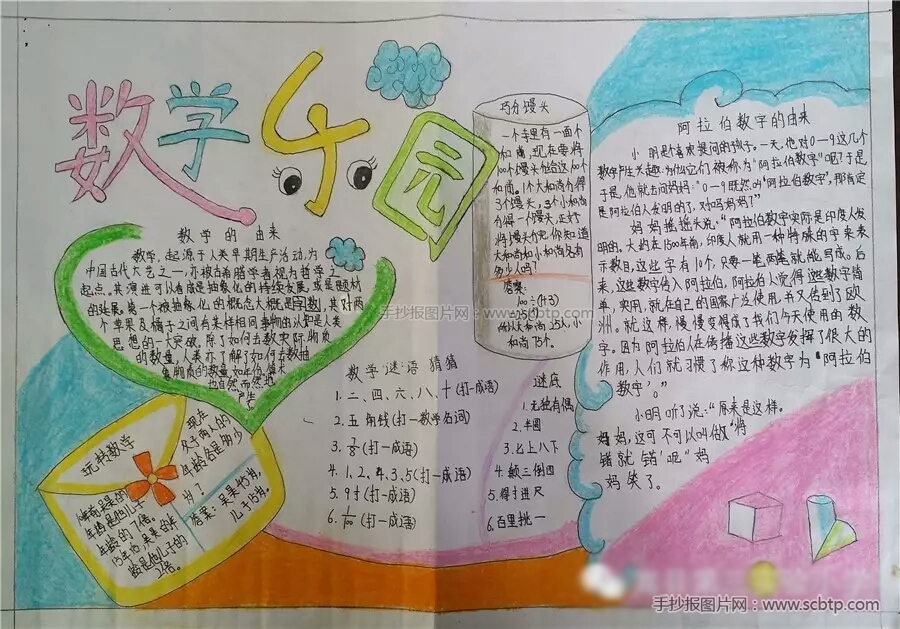 数学乐园
数学的由来
数学,起源于人类早期生产活动,为
中国古代六艺之一,亦被古希腊学者视为哲学之
起点。其演进可以看成是抽象化的持续发展,或是题材
的延展。第一个被抽象化的概念大概是字数,其对两
个苹果及橘子之间有某样相同事物的认知是人类
思想的一大突破。除了如何去数实际物质
的数量,人类亦了解了如何去数抽
象物质的数量,如年份,算术
也自然而然地
产生
玩转数学
10年前吴昊的
年龄是他儿子
年龄的7倍。
15年后,吴昊的年
龄是他儿子的
2倍。
现在
父子两人的
年龄各是多少
岁?
答案:吴昊45岁,
儿子15岁。
数学谜语猜猜
1.二、四、六、八、十(打一成语)
2.五角钱(打一数学名词)
3.7/8(打一成语)
4.1、2、4、3、5(打一成语)
5.9寸(打一成语)
6.1/100(打一成语)
谜底
1.无独有偶
2.半圆
3.七上八下
4.颠三倒四
5.得寸进尺
6.百里挑一
巧分馒头
一个寺里有一百个
和尚,现在要将
100个馒头恰给这100个
和尚。1个大和尚分得
3个馒头,3个小和尚
分得一个馒头,正好
将馒头分完。你知道
大和尚和小和尚各有
多少人吗?
答案:
100÷(1+3)
=25(人)
所以大和尚25人,小
和尚75个。
阿拉伯数字的由来
小明是个喜欢提问的孩子。一天,他对0—9这几个
数字产生兴趣:为什么它们被称为“阿拉伯数字”呢?于是,
于是,他就去问妈妈:“0—9既然叫‘阿拉伯数字’,那肯定
是阿拉伯人发明的了,对吗妈妈?”
妈妈摇摇头说:“阿拉伯数字实际是印度人发
明的。大约在1500年前,印度人就用一种特殊的字来表
示数目,这些字有10个,只要一笔两笔就能写成。后
来,这些数字传入阿拉伯,阿拉伯人觉得这些数字简
单,实用,就在自己的国家广泛使用,并又传到了欧
洲。就这样,慢慢变得成了我们今天使用的数
字。因为阿拉伯人在传播这些数字发挥了很大的
作用,人们就习惯了称这种数字为‘阿拉伯
数字’。”
小明听了说:“原来是这样。
妈妈,这可不可以叫做‘将
错就错’呢”妈
妈笑了。
手抄报图片网:www.scbtp.com
手抄报图片网:www.scbtp.com